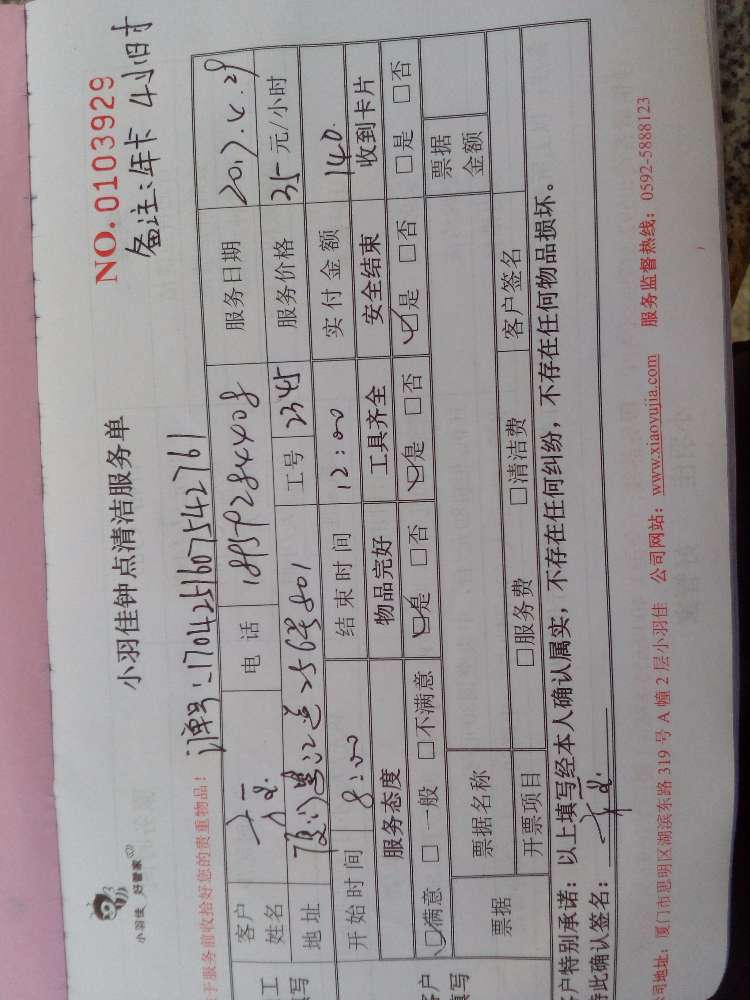 小羽佳 好管家
NO.0103929
小羽佳钟点清洁服务单
备注:年卡 4小时
于服务前收拾好您的贵重物品!
订单号:1704251607542761
工
填写
客户
姓名
电话
18959284408
服务日期
2017.4.29
地址
256号801
工号
2345
服务价格
35元/小时
开始时间
8:00
结束时间
12:00
实付金额
140.
客户
填写
服务态度
物品完好
工具齐全
安全结束
收到卡片
☑满意 □一般 □不满意
☑是 □否
☑是 □否
☑是 □否
□是 □否
票据
票据名称
票据
金额
开票项目
□服务费 □清洁费
客户签名
客户特别承诺:以上填写经本人确认属实,不存在任何纠纷,不存在任何物品损坏。
特此确认签名:
司地址:厦门市思明区湖滨东路 319 号 A 幢 2 层小羽佳 公司网站:www.xiaoyujia.com 服务监督热线:0592-5888123